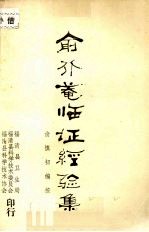 外借
俞介菴临证經验集
俞慎初编校
福清县卫生局
福清县科学技术委员会
福清县科学技术协会
印行